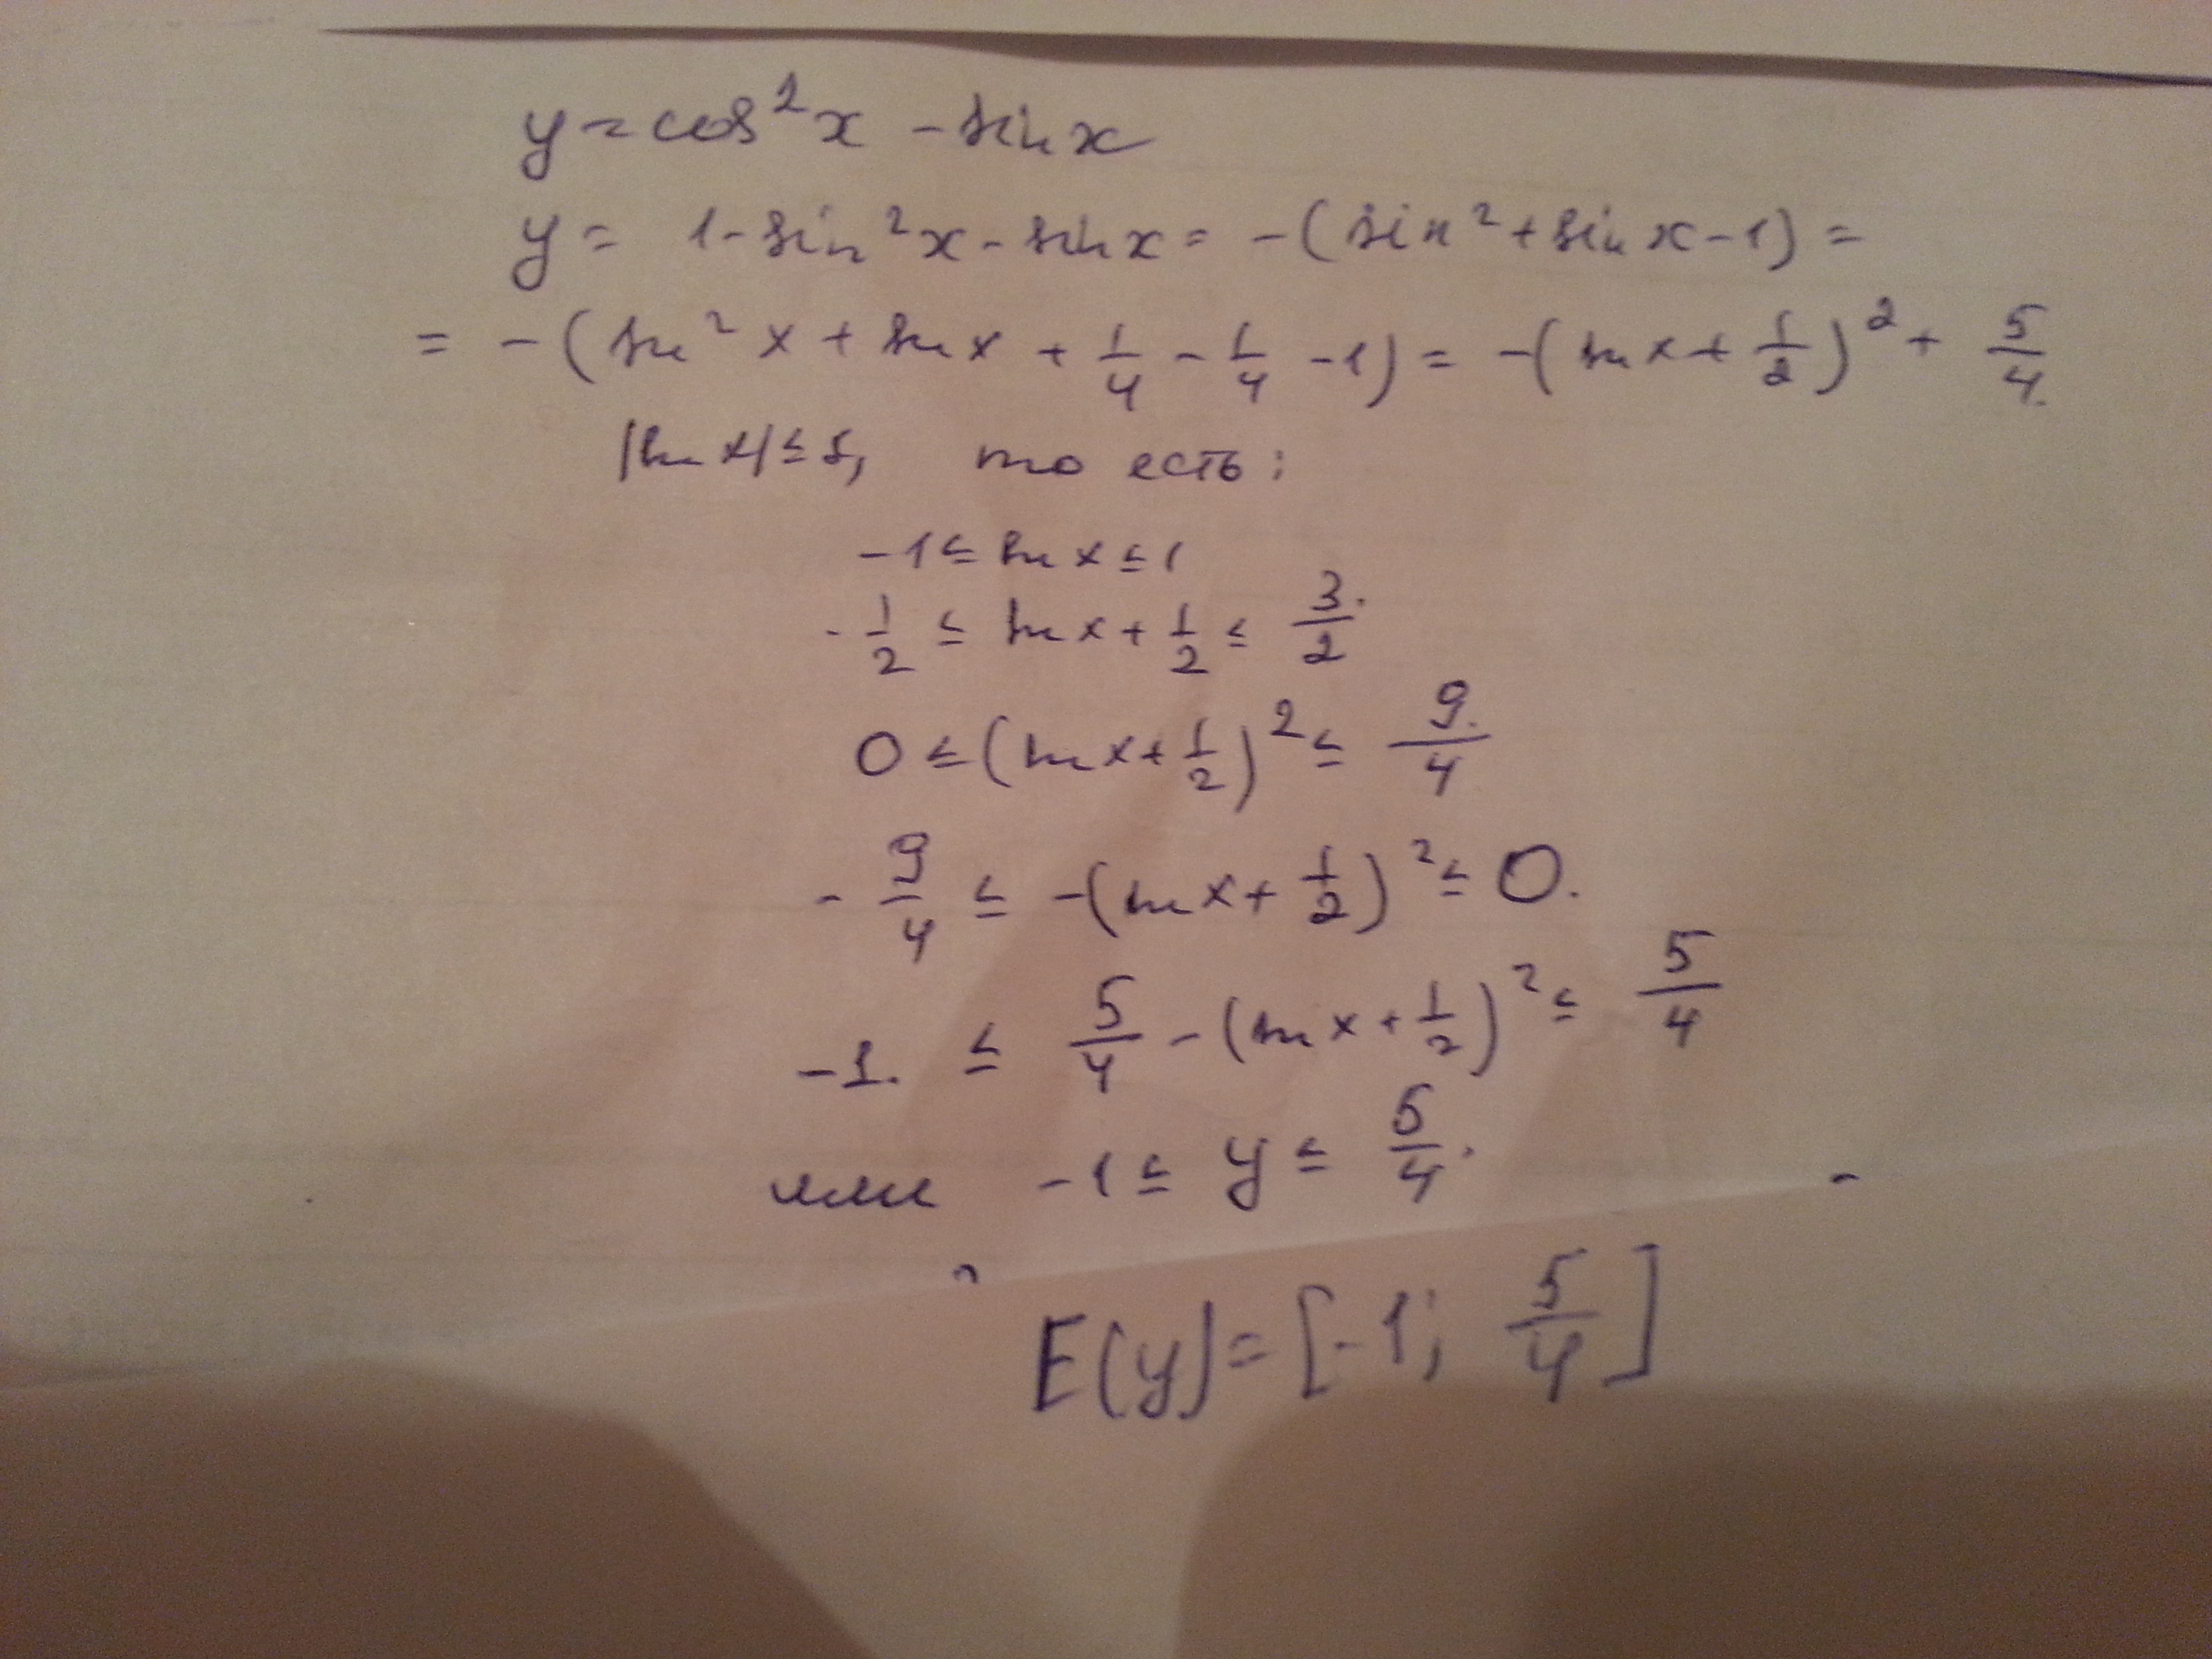 y = cos²x - sin x
y = 1 - sin²x - sin x = -(sin² + sin x - 1) =
= -(sin²x + sin x + 1/4 - 1/4 - 1) = -(sin x + 1/2)² + 5/4
|sin x| ≤ 1, то есть:
-1 ≤ sin x ≤ 1
-1/2 ≤ sin x + 1/2 ≤ 3/2
0 ≤ (sin x + 1/2)² ≤ 9/4
-9/4 ≤ -(sin x + 1/2)² ≤ 0.
-1 ≤ 5/4 - (sin x + 1/2)² ≤ 5/4
или -1 ≤ y ≤ 5/4.
E(y) = [-1; 5/4]